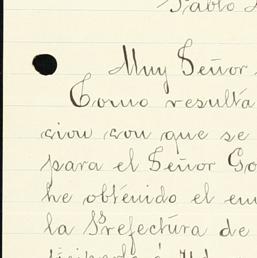 Pablo
Muy Señor
Como resulta
cion con que se
para el Señor Go
he obtenido el em
la Prefectura de